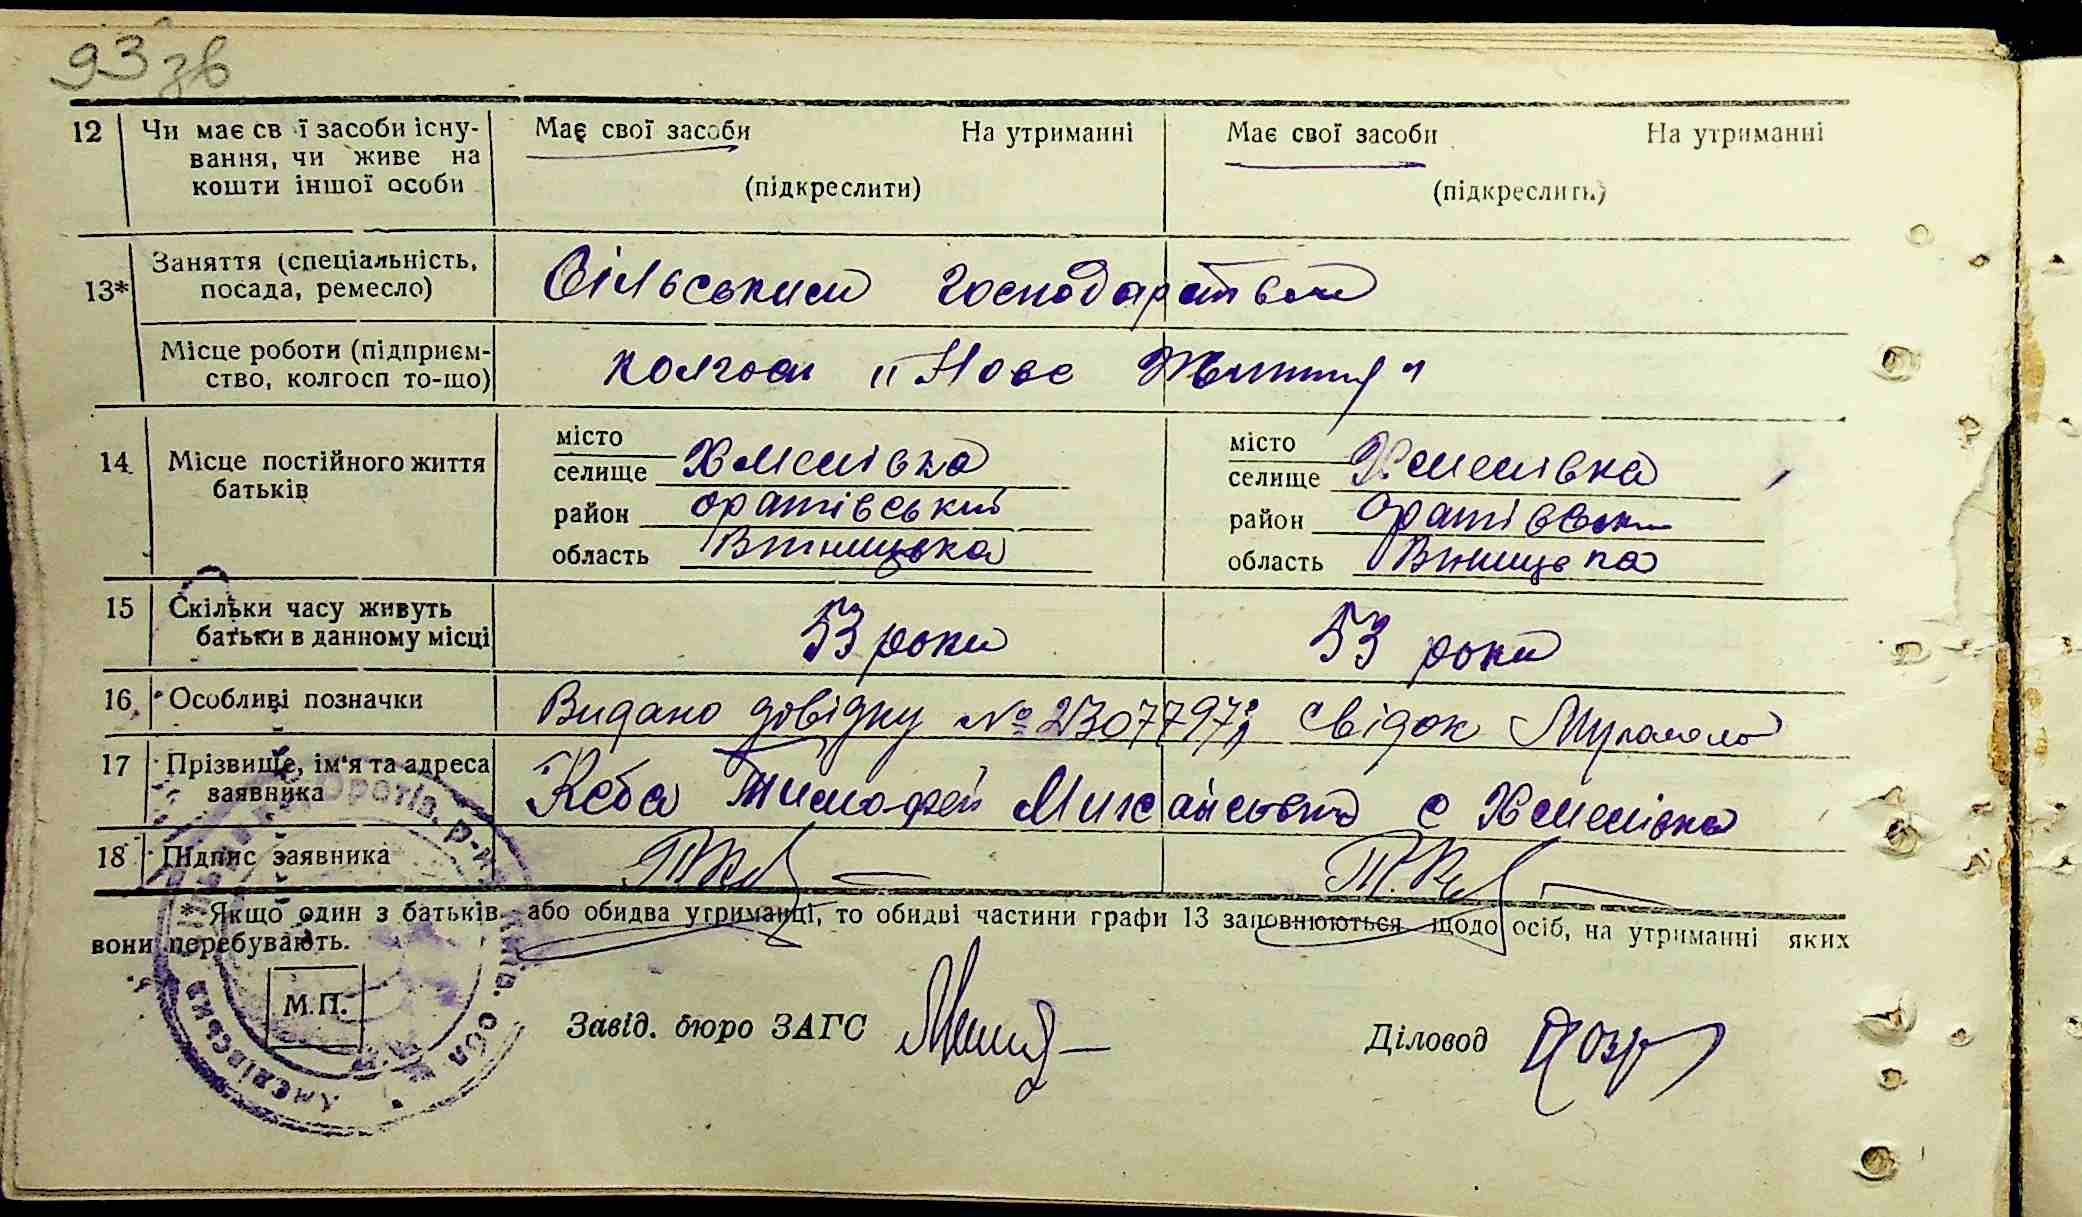 93 зв
12 Чи має св ї засоби існу- Має свої засоби На утриманні Має свої засоби На утриманні
вання, чи живе на
кошти іншої особи (підкреслити) (підкреслить)
Заняття (спеціальність, Сільським господарством
13* посада, ремесло)
Місце роботи (підприєм- колгосп "Нове Життя"
ство, колгосп то-що)
місто місто
14 Місце постійного життя селище Хмелівка селище Хмелівка
батьків район оратівський район оратівськи
область Вінницька область Вінницька
15 Скільки часу живуть 53 роки 53 роки
батьки в данному місці
16 Особливі позначки Видано довідку № 2307797; свідок
17 Прізвище, ім'я та адреса Кеба Тимофей с Хмелівка
заявника
18 Підпис заявника
* Якщо один з батьків або обидва утриманці, то обидві частини графи 13 заповнюються щодо осіб, на утриманні яких
вони перебувають.
М.П.
Завід. бюро ЗАГС Діловод